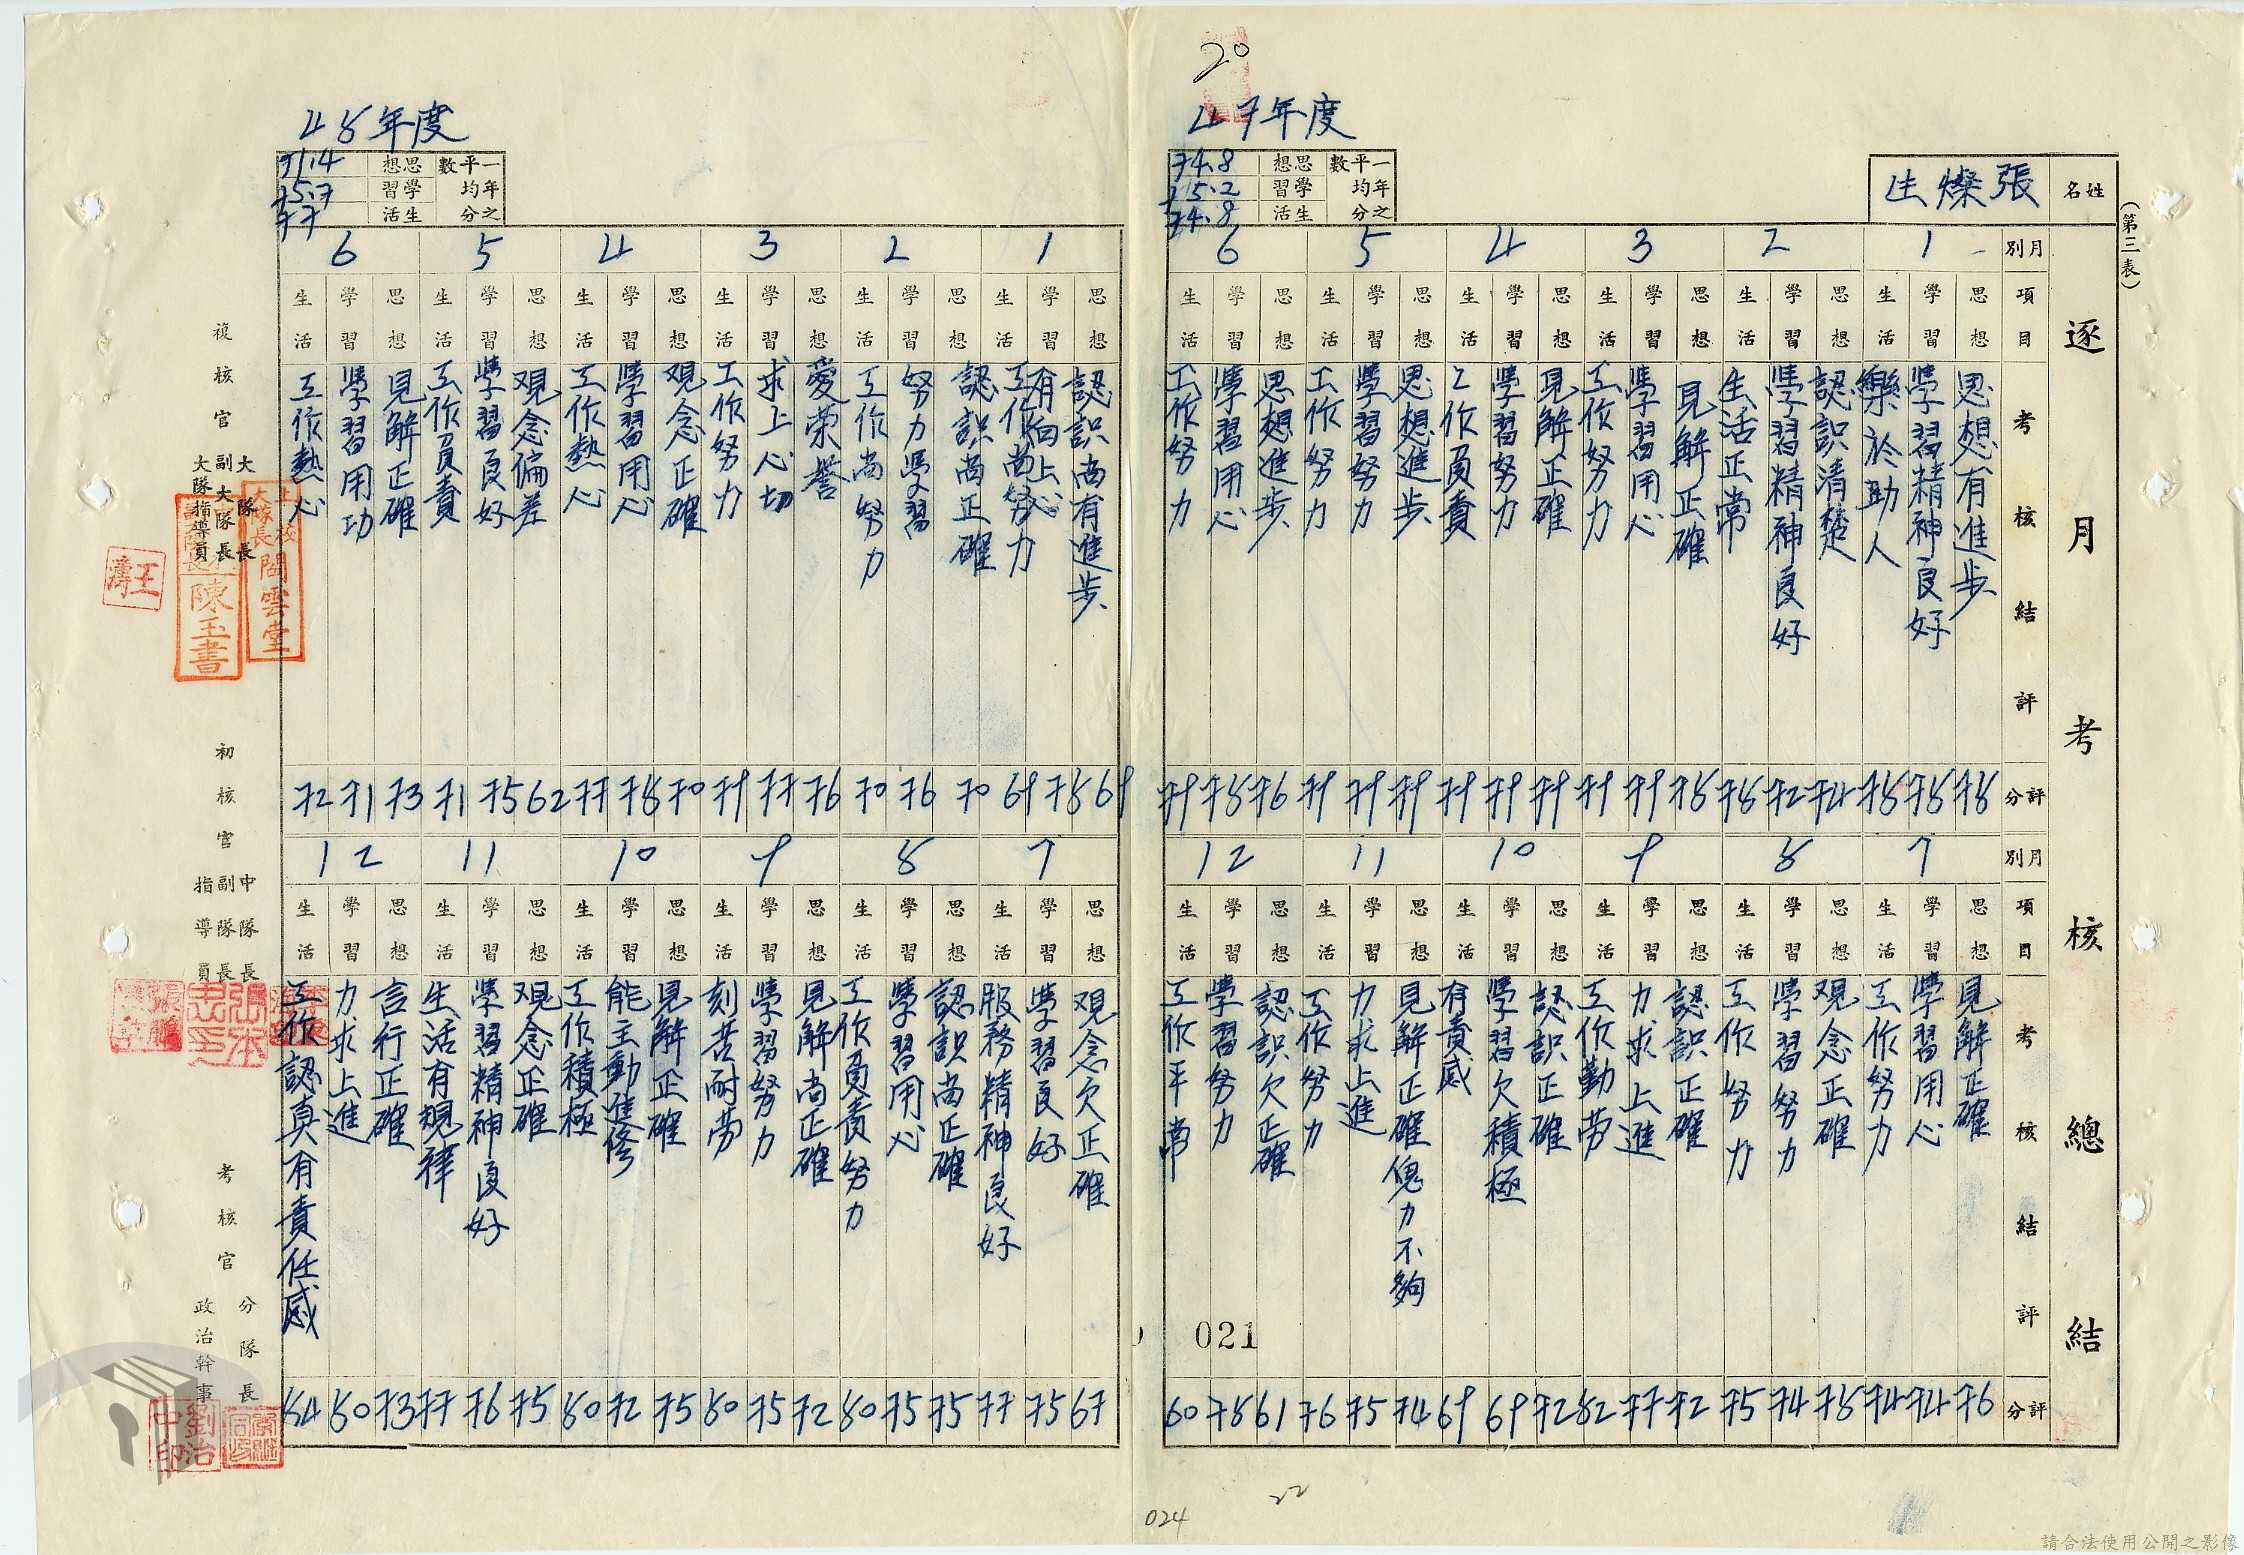 20
47年度
一年之平均分數
思想 74.8
學習 75.2
生活 74.8
姓名 張燦生
(第三表)
逐月考核總結
月別 1 2 3 4 5 6
項目 思想 學習 生活 思想 學習 生活 思想 學習 生活 思想 學習 生活 思想 學習 生活 思想 學習 生活
考核結評
思想有進步
學習精神良好
樂於助人
認識清楚
學習精神良好
生活正常
見解正確
學習用心
工作努力
見解正確
學習努力
工作負責
思想進步
學習努力
工作努力
思想進步
學習用心
工作努力
評分 78 78 78 74 72 78 78 79 79 79 79 79 79 79 79 76 78 79
月別 7 8 9 10 11 12
項目 思想 學習 生活 思想 學習 生活 思想 學習 生活 思想 學習 生活 思想 學習 生活 思想 學習 生活
考核結評
見解正確
學習用心
工作努力
觀念正確
學習努力
工作努力
認識正確
力求上進
工作勤勞
認識正確
學習欠積極
有責感
見解正確傀力不夠
力求上進
工作努力
認識欠正確
學習努力
工作平常
評分 76 74 74 78 74 75 72 77 82 72 69 69 74 75 76 61 78 60
021
48年度
一年之平均分數
思想 71.4
學習 75.7
生活 77
1 2 3 4 5 6
思想 學習 生活 思想 學習 生活 思想 學習 生活 思想 學習 生活 思想 學習 生活 思想 學習 生活
認識尚有進步
有向上心
工作尚努力
認識尚正確
努力學習
工作尚努力
愛榮譽
求上心切
工作努力
觀念正確
學習用心
工作熱心
觀念偏差
學習良好
工作負責
見解正確
學習用功
工作熱心
69 78 69 70 76 70 76 77 79 70 78 77 62 75 71 73 71 72
7 8 9 10 11 12
思想 學習 生活 思想 學習 生活 思想 學習 生活 思想 學習 生活 思想 學習 生活 思想 學習 生活
觀念欠正確
學習良好
服務精神良好
認識尚正確
學習用心
工作負責努力
見解尚正確
學習努力
刻苦耐勞
見解正確
能主動進修
工作積極
觀念正確
學習精神良好
生活有規律
言行正確
力求上進
工作認真有責任感
67 75 77 75 75 80 72 75 80 75 72 80 75 76 77 73 80 84
複核官
大隊長
副大隊長
大隊指導員
閻雲堂
陳玉書
初核官
中隊長
副隊長
指導員
考核官
分隊長
政治幹事
劉治中印
024
22
請合法使用公開之影像